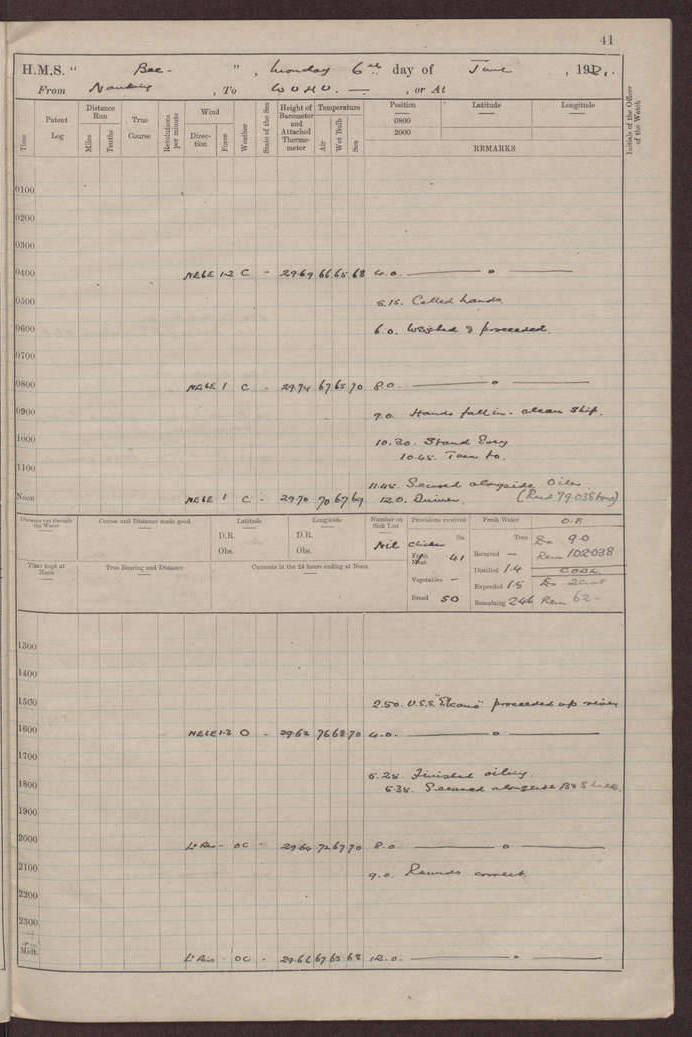 41
H.M.S. " Bee - " , Monday 6th day of June , 192 .
From Nanking , To WUHU. — , or At
Time Patent Log Distance Run Miles Tenths True Course Revolutions per minute Wind Direction Force Weather State of the Sea Height of Barometer and Attached Thermometer Temperature Air Wet Bulb Sea Position 0800 2000 Latitude Longitude REMARKS Initials of the Officer of the Watch
0100
0200
0300
0400 NE6E 1-2 C - 29.69 66 65 68 4.0. — o —
0500 5.15. Called hands
0600 6.0. Weighed & proceeded.
0700
0800 NE6E 1 C - 29.74 67 65 70 8.0. — o —
0900 9.0 Hands fall in. clean ship.
1000 10.30. Stand Easy
10.45. Turn to.
1100
11.45. Secured alongside Oiler
Noon NE6E 1 C - 29.70 70 67 69 12.0. Dinner. (Recd 79.038 tons)
Distance run through the Water Course and Distance made good Latitude Longitude Number on Sick List Provisions received Fresh Water O.F.
D.R. D.R. lbs. Tons Ex 9.0
Obs. Obs. Nil Chicken Received — Rem 102.038
Fresh Meat 41
Zero kept at Noon True Bearing and Distance Currents in the 24 hours ending at Noon Distilled 14 COAL
Vegetables — Expended 15 Ex 2 cwt
Bread 50 Remaining 246 Rem 62 -
1300
1400
1500 2.50. U.S.S. "Elcano" proceeded up river
1600 NE6E 1-2 O - 29.62 76 68 70 4.0. — o —
1700
5.28. Finished oiling.
1800 5.38. Secured alongside
1900
2000 Lt Airs - OC - 29.64 72 67 70 8.0 — o —
2100 9.0. Rounds correct.
2200
2300
Midt. Lt Airs - OC - 29.66 67 65 68 12.0. — o —